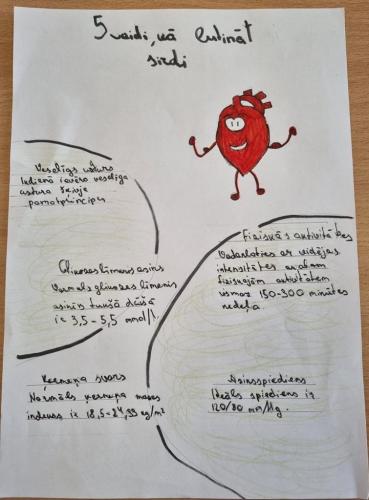 5 veidi, kā lutināt
sirdi
Veselīgs uzturs
Ikdienā ievēro veselīga
uztura
pamatprincipus
Glikozes līmenis asinīs
Normāls glikozes līmenis
asinīs tukšā dūšā
ir 3,5-5,5 mmol/l
Ķermeņa svars
Normāls ķermeņa masas
indekss ir 18,5-24,99 kg/m²
Fiziskās aktivitātes
Nodarboties ar vidējas
intensitātes
fiziskajām aktivitātēm
vismaz 150-300 minūtes
nedēļā.
Asinsspiediens
Ideāls spiediens ir
120/80 mm/Hg.